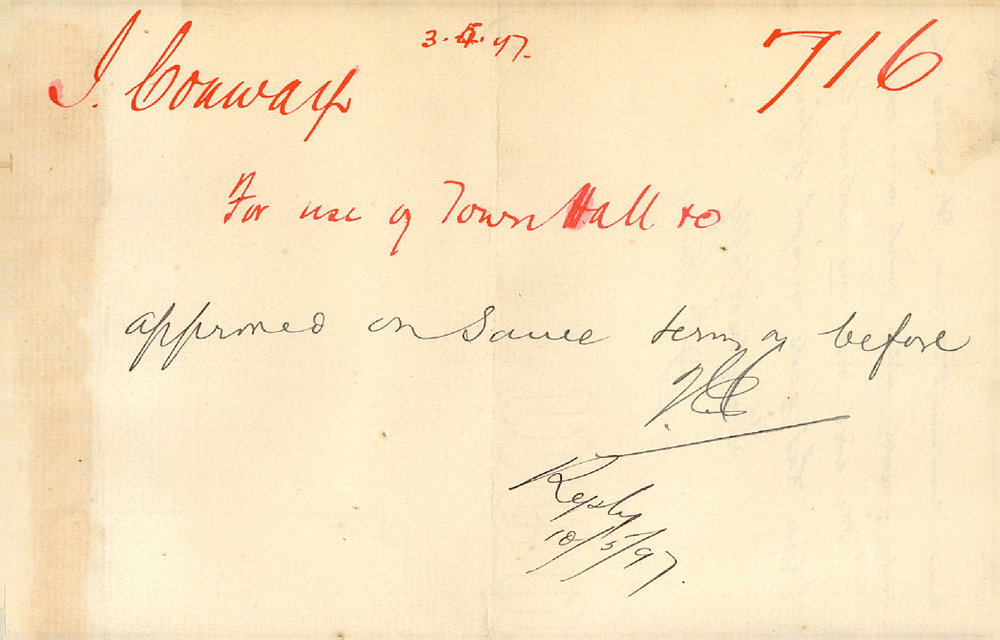 3.5.97.
J. Conway
716
For use of Town Hall &c
approved on same terms as before
Reply
10/5/97.